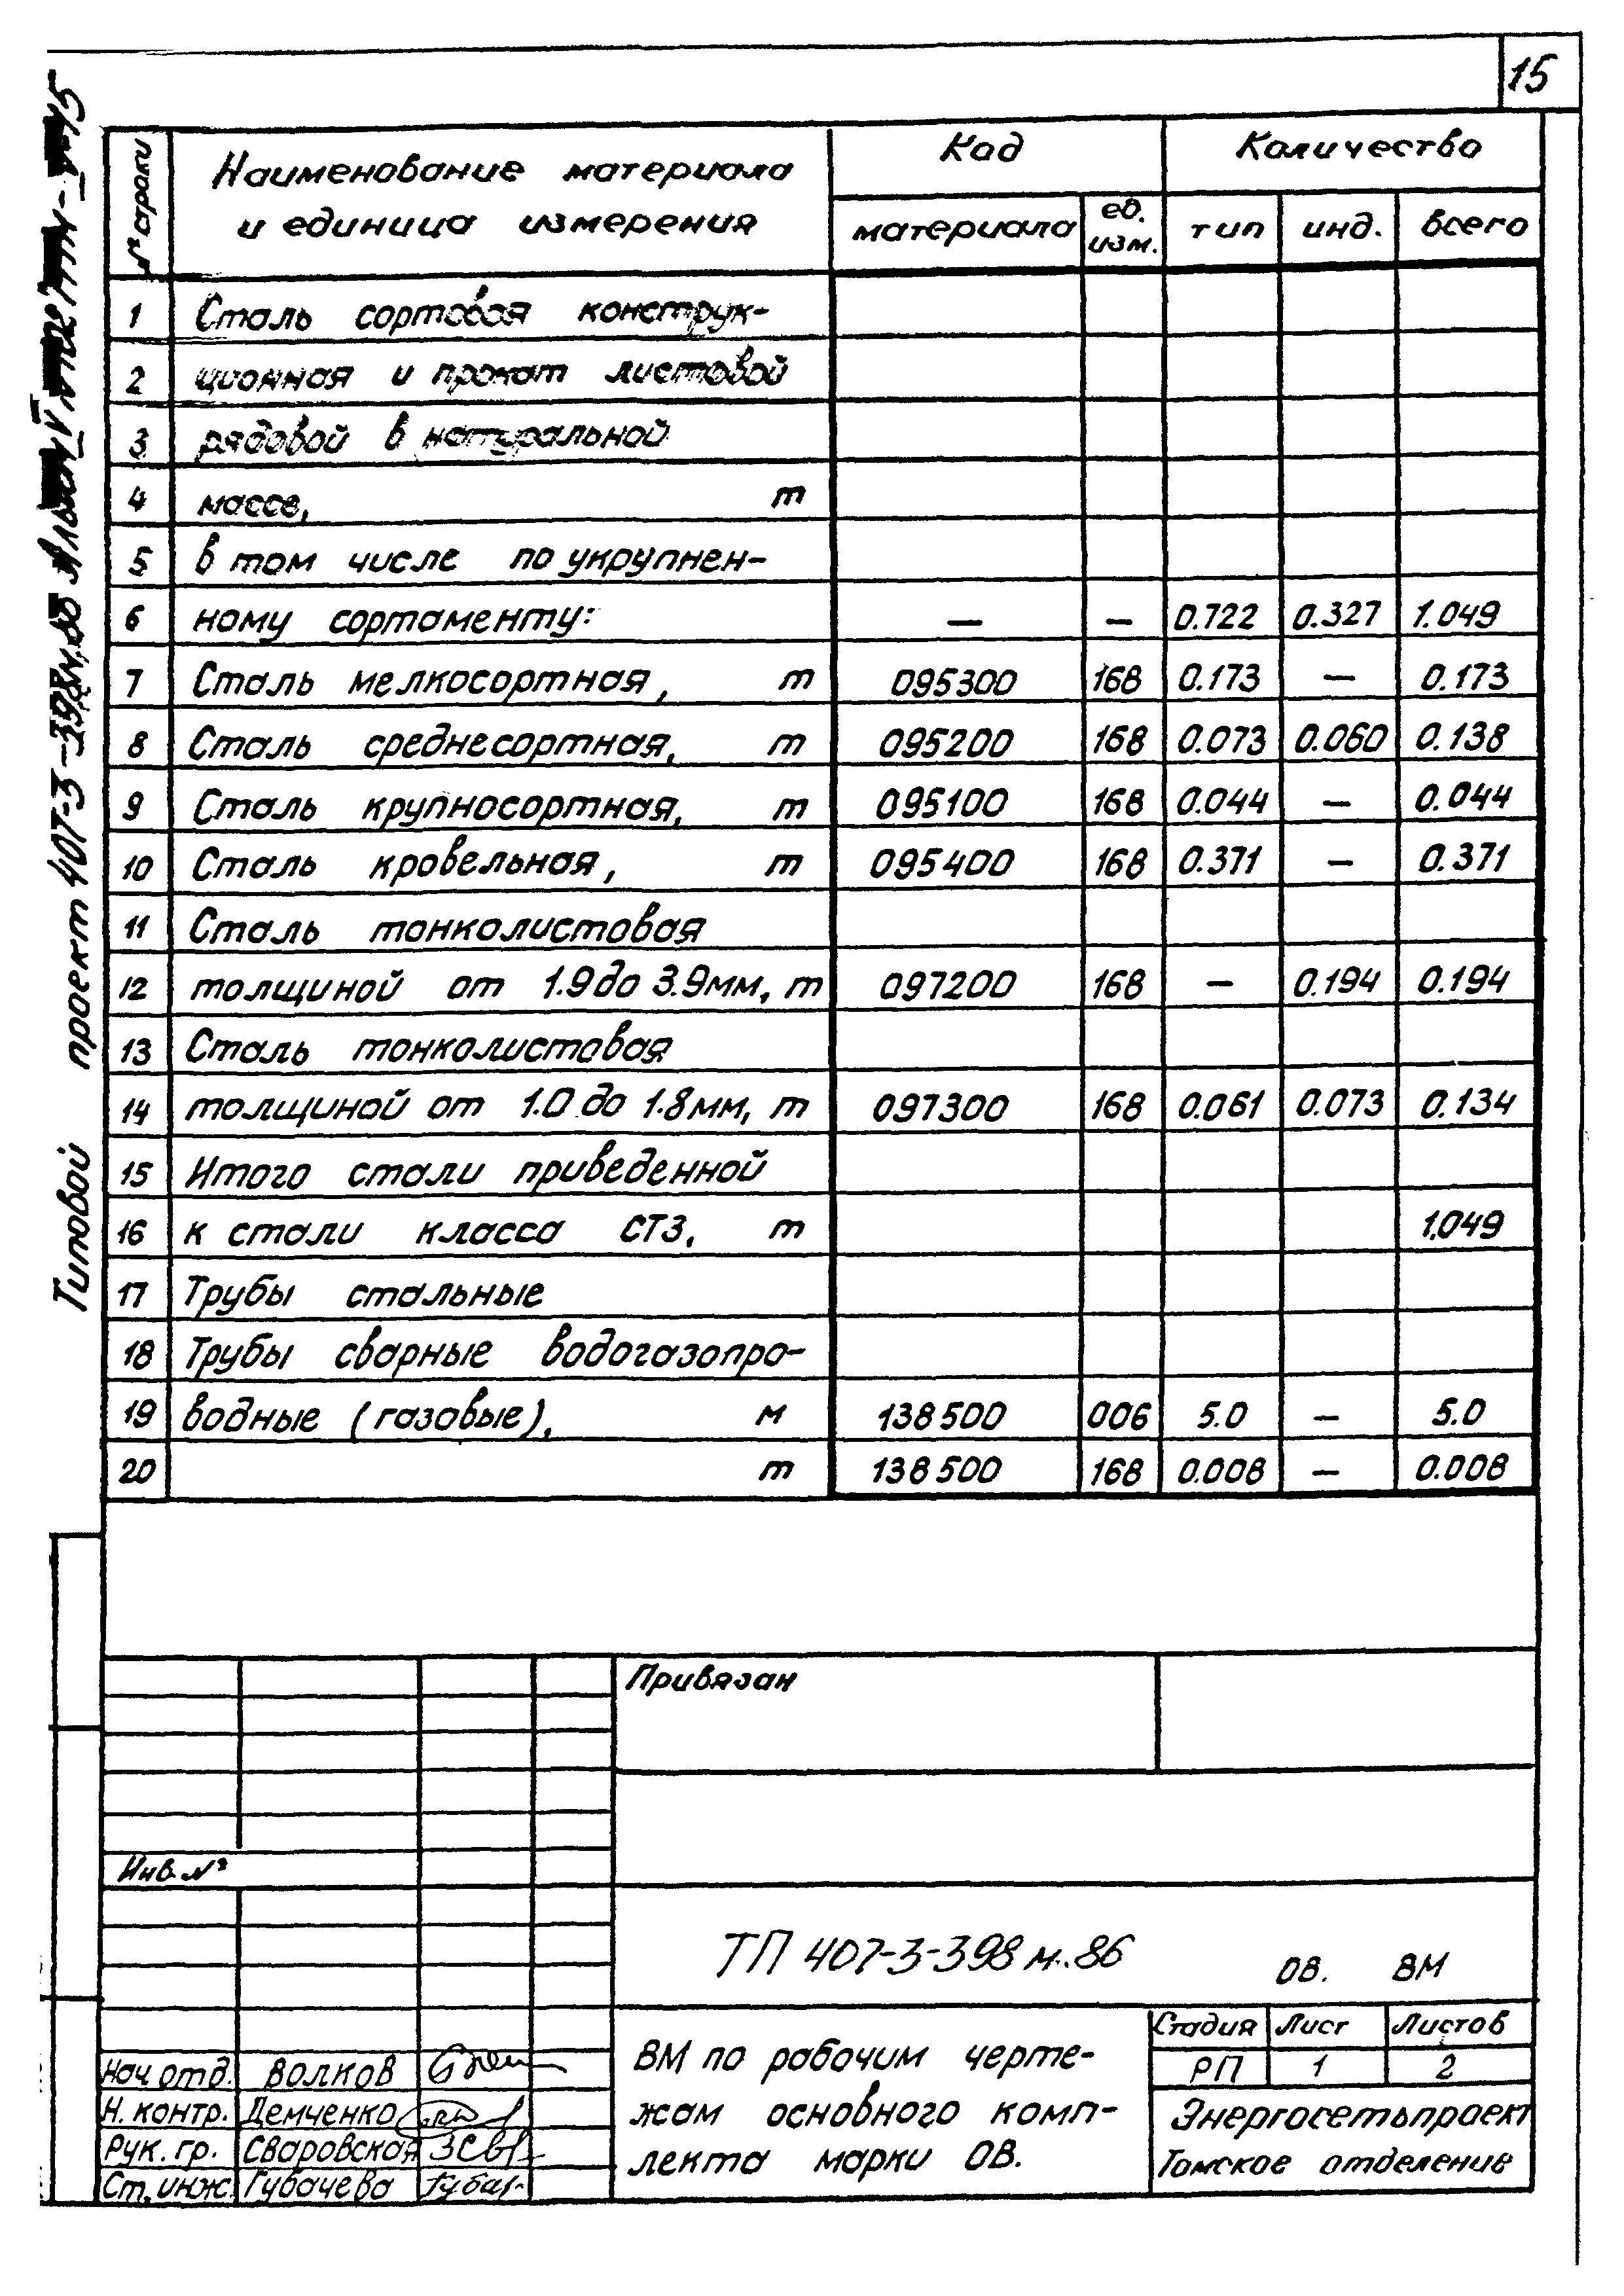 15
Типовой проект 407-3-398м.86
№ строки
Наименование материала и единица измерения
Код
Количество
материала
ед. изм.
тип
инд.
всего
1 Сталь сортовая конструк-
2 ционная и прокат листовой
3 рядовой в натуральной
4 массе, т
5 в том числе по укрупнен-
6 ному сортаменту: — — 0.722 0.327 1.049
7 Сталь мелкосортная, т 095300 168 0.173 — 0.173
8 Сталь среднесортная, т 095200 168 0.073 0.060 0.138
9 Сталь крупносортная, т 095100 168 0.044 — 0.044
10 Сталь кровельная, т 095400 168 0.371 — 0.371
11 Сталь тонколистовая
12 толщиной от 1.9 до 3.9мм, т 097200 168 — 0.194 0.194
13 Сталь тонколистовая
14 толщиной от 1.0 до 1.8мм, т 097300 168 0.061 0.073 0.134
15 Итого стали приведенной
16 к стали класса СТ3, т 1.049
17 Трубы стальные
18 Трубы сварные водогазопро-
19 водные (газовые), м 138500 006 5.0 — 5.0
20 т 138500 168 0.008 — 0.008
Привязан
Инв.№
ТП 407-3-398 м.86 ОВ. ВМ
Нач отд. Волков
Н. контр. Демченко
Рук. гр. Сваровская
Ст. инж. Губачева
ВМ по рабочим черте-
жам основного комп-
лекта марки ОВ.
Стадия Лист Листов
РП 1 2
Энергосетьпроект
Томское отделение